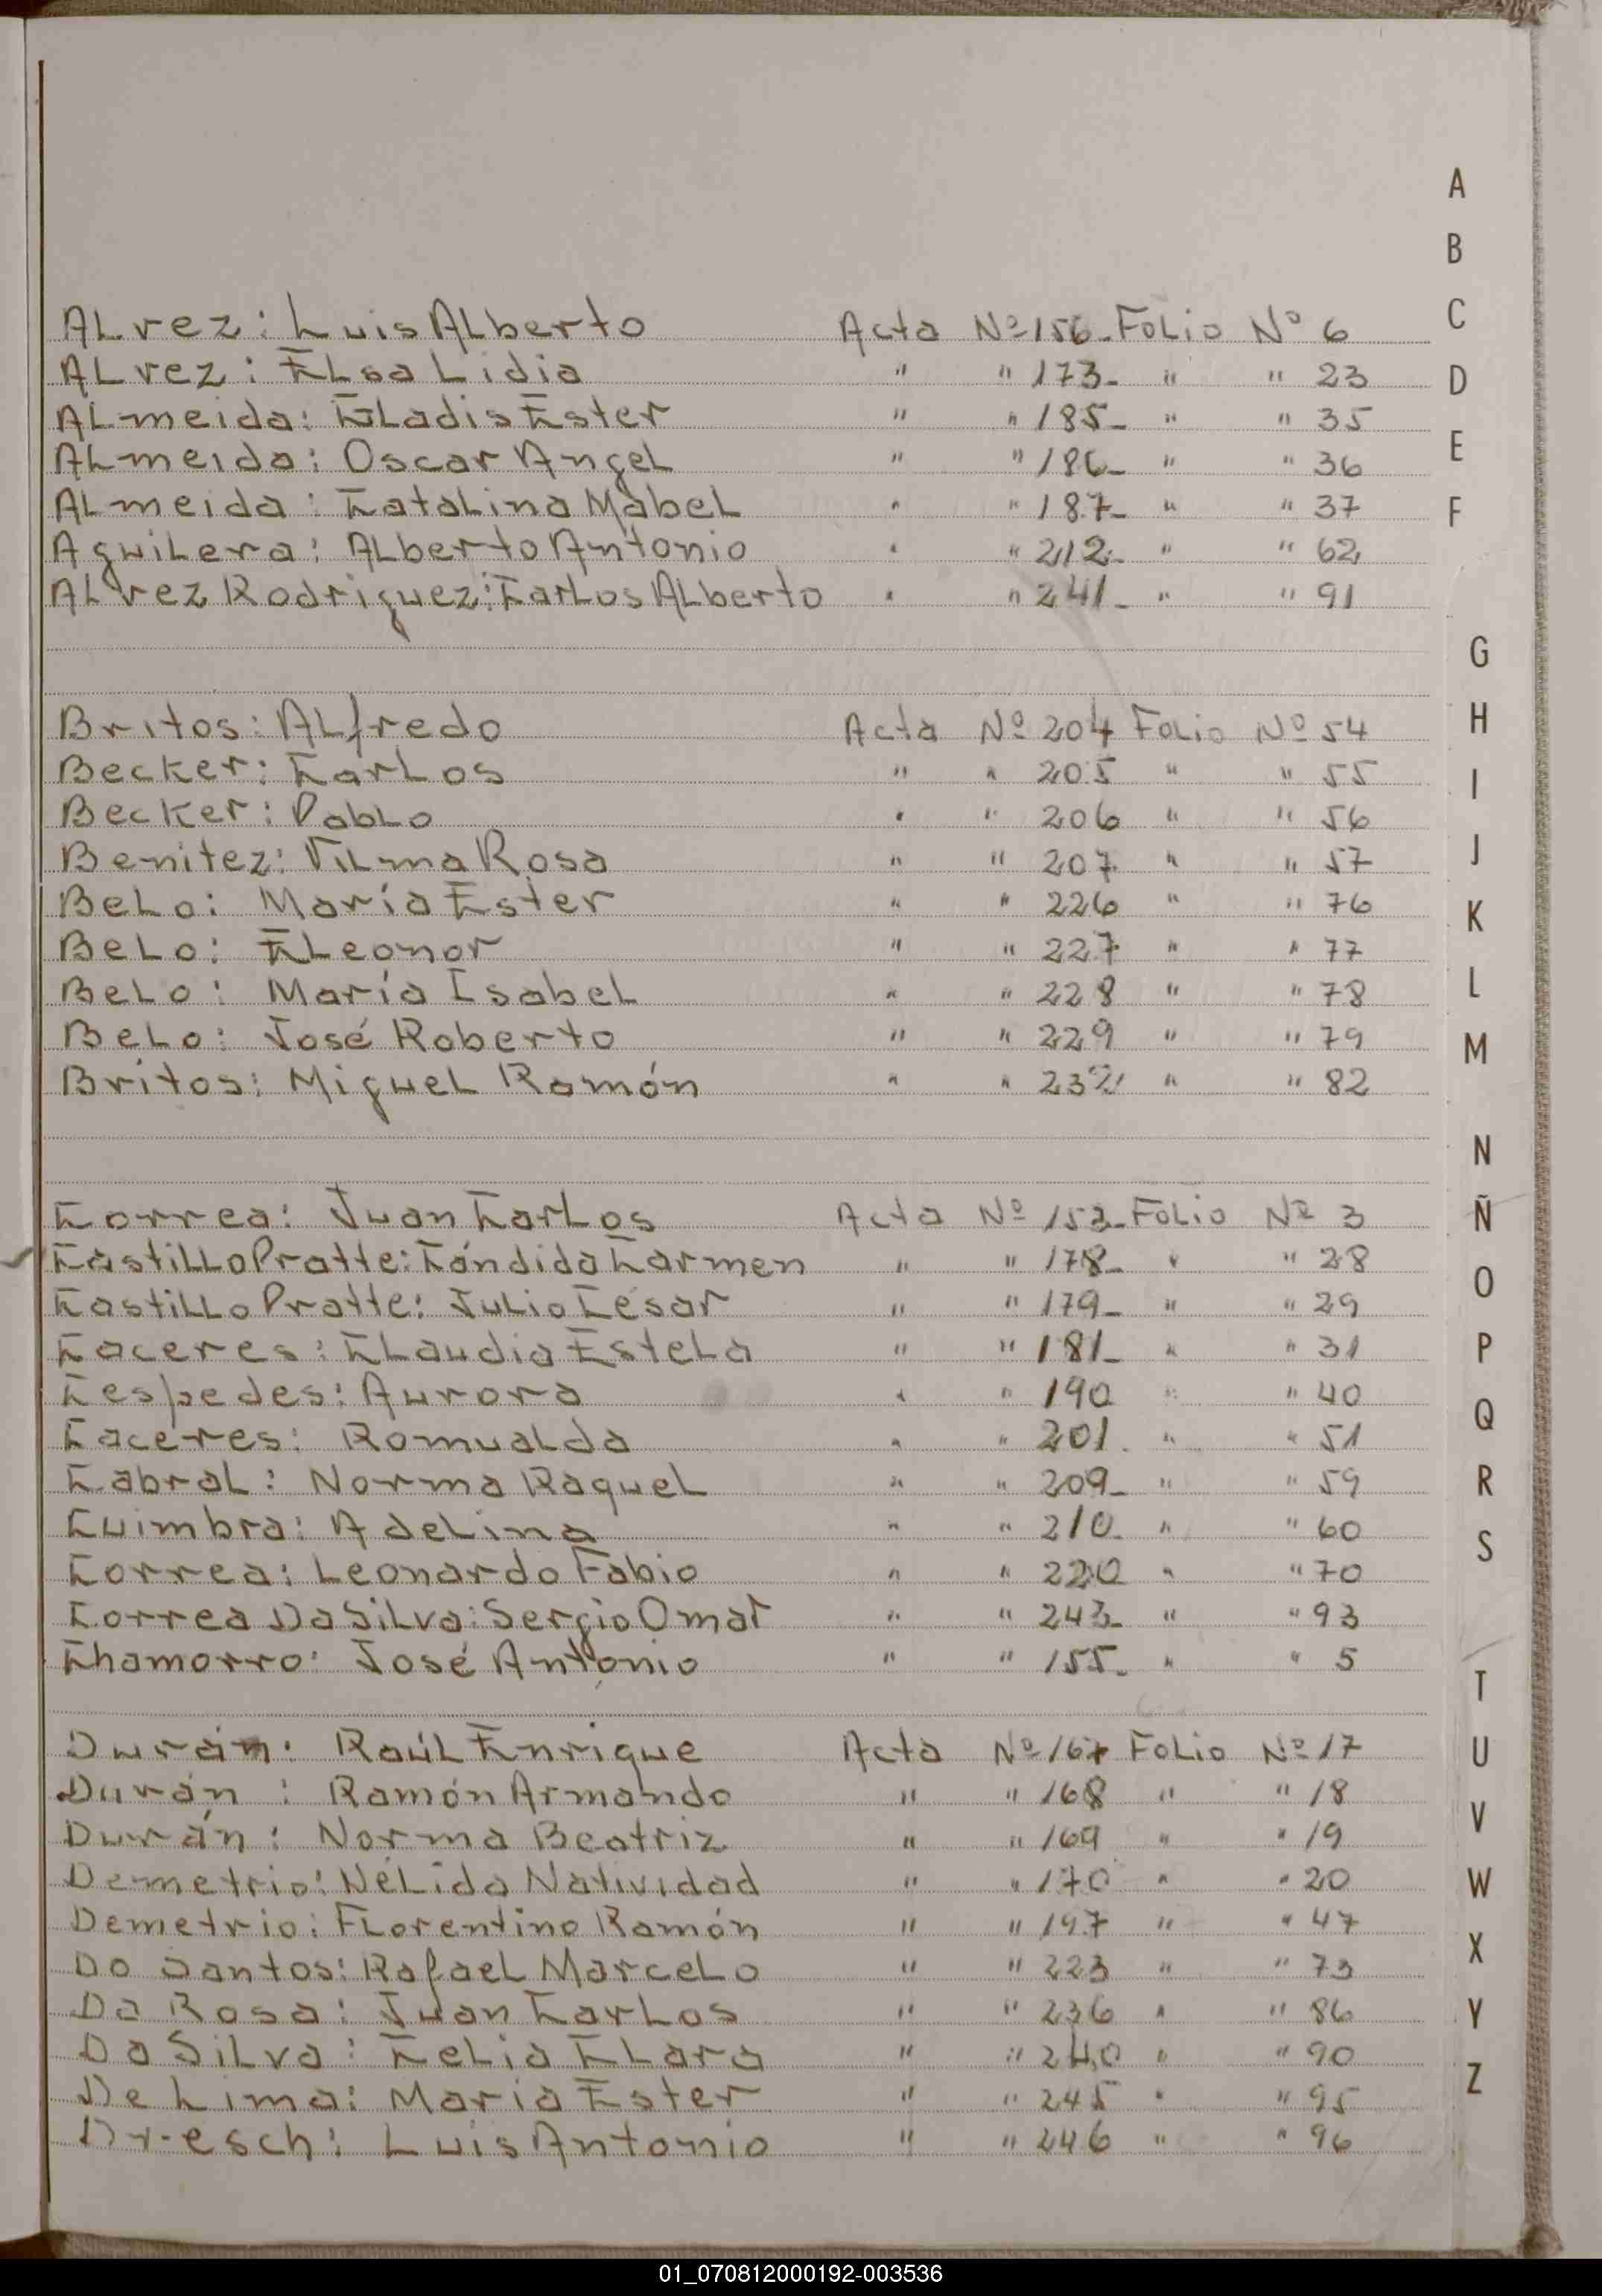 Alvez: Luis Alberto Acta Nº 156 - Folio Nº 6
Alvez: Elsa Lidia " " 173 - " " 23
Almeida: Gladis Ester " " 185 - " " 35
Almeida: Oscar Angel " " 186 - " " 36
Almeida: Catalina Mabel " " 187 - " " 37
Aguilera: Alberto Antonio " " 212 - " " 62
Alvez Rodriguez: Carlos Alberto " " 241 - " " 91
Britos: Alfredo Acta Nº 204 Folio Nº 54
Becker: Carlos " " 205 " " 55
Becker: Pablo " " 206 " " 56
Benitez: Vilma Rosa " " 207 " " 57
Belo: María Ester " " 226 " " 76
Belo: Eleonor " " 227 " " 77
Belo: María Isabel " " 228 " " 78
Belo: José Roberto " " 229 " " 79
Britos: Miguel Ramón " " 232 " " 82
Correa: Juan Carlos Acta Nº 153 - Folio Nº 3
Castillo Pratte: Cándida Carmen " " 178 - " " 28
Castillo Pratte: Julio César " " 179 - " " 29
Caceres: Claudia Estela " " 181 - " " 31
Cespedes: Aurora " " 190 " " 40
Caceres: Romualda " " 201 " " 51
Cabral: Norma Raquel " " 209 - " " 59
Cuimbra: Adelina " " 210 - " " 60
Correa: Leonardo Fabio " " 220 " " 70
Correa Da Silva: Sergio Omar " " 243 - " " 93
Chamorro: José Antonio " " 155 - " " 5
Durán: Raúl Enrique Acta Nº 167 Folio Nº 17
Durán: Ramón Armando " " 168 " " 18
Durán: Norma Beatriz " " 169 " " 19
Demetrio: Nélida Natividad " " 170 " " 20
Demetrio: Florentino Ramón " " 197 " " 47
Do Santos: Rafael Marcelo " " 223 " " 73
Da Rosa: Juan Carlos " " 236 " " 86
Da Silva: Celia Clara " " 240 " " 90
De Lima: Maria Ester " " 245 " " 95
Dresch: Luis Antonio " " 246 " " 96
A
B
C
D
E
F
G
H
I
J
K
L
M
N
Ñ
O
P
Q
R
S
T
U
V
W
X
Y
Z
01_070812000192-003536